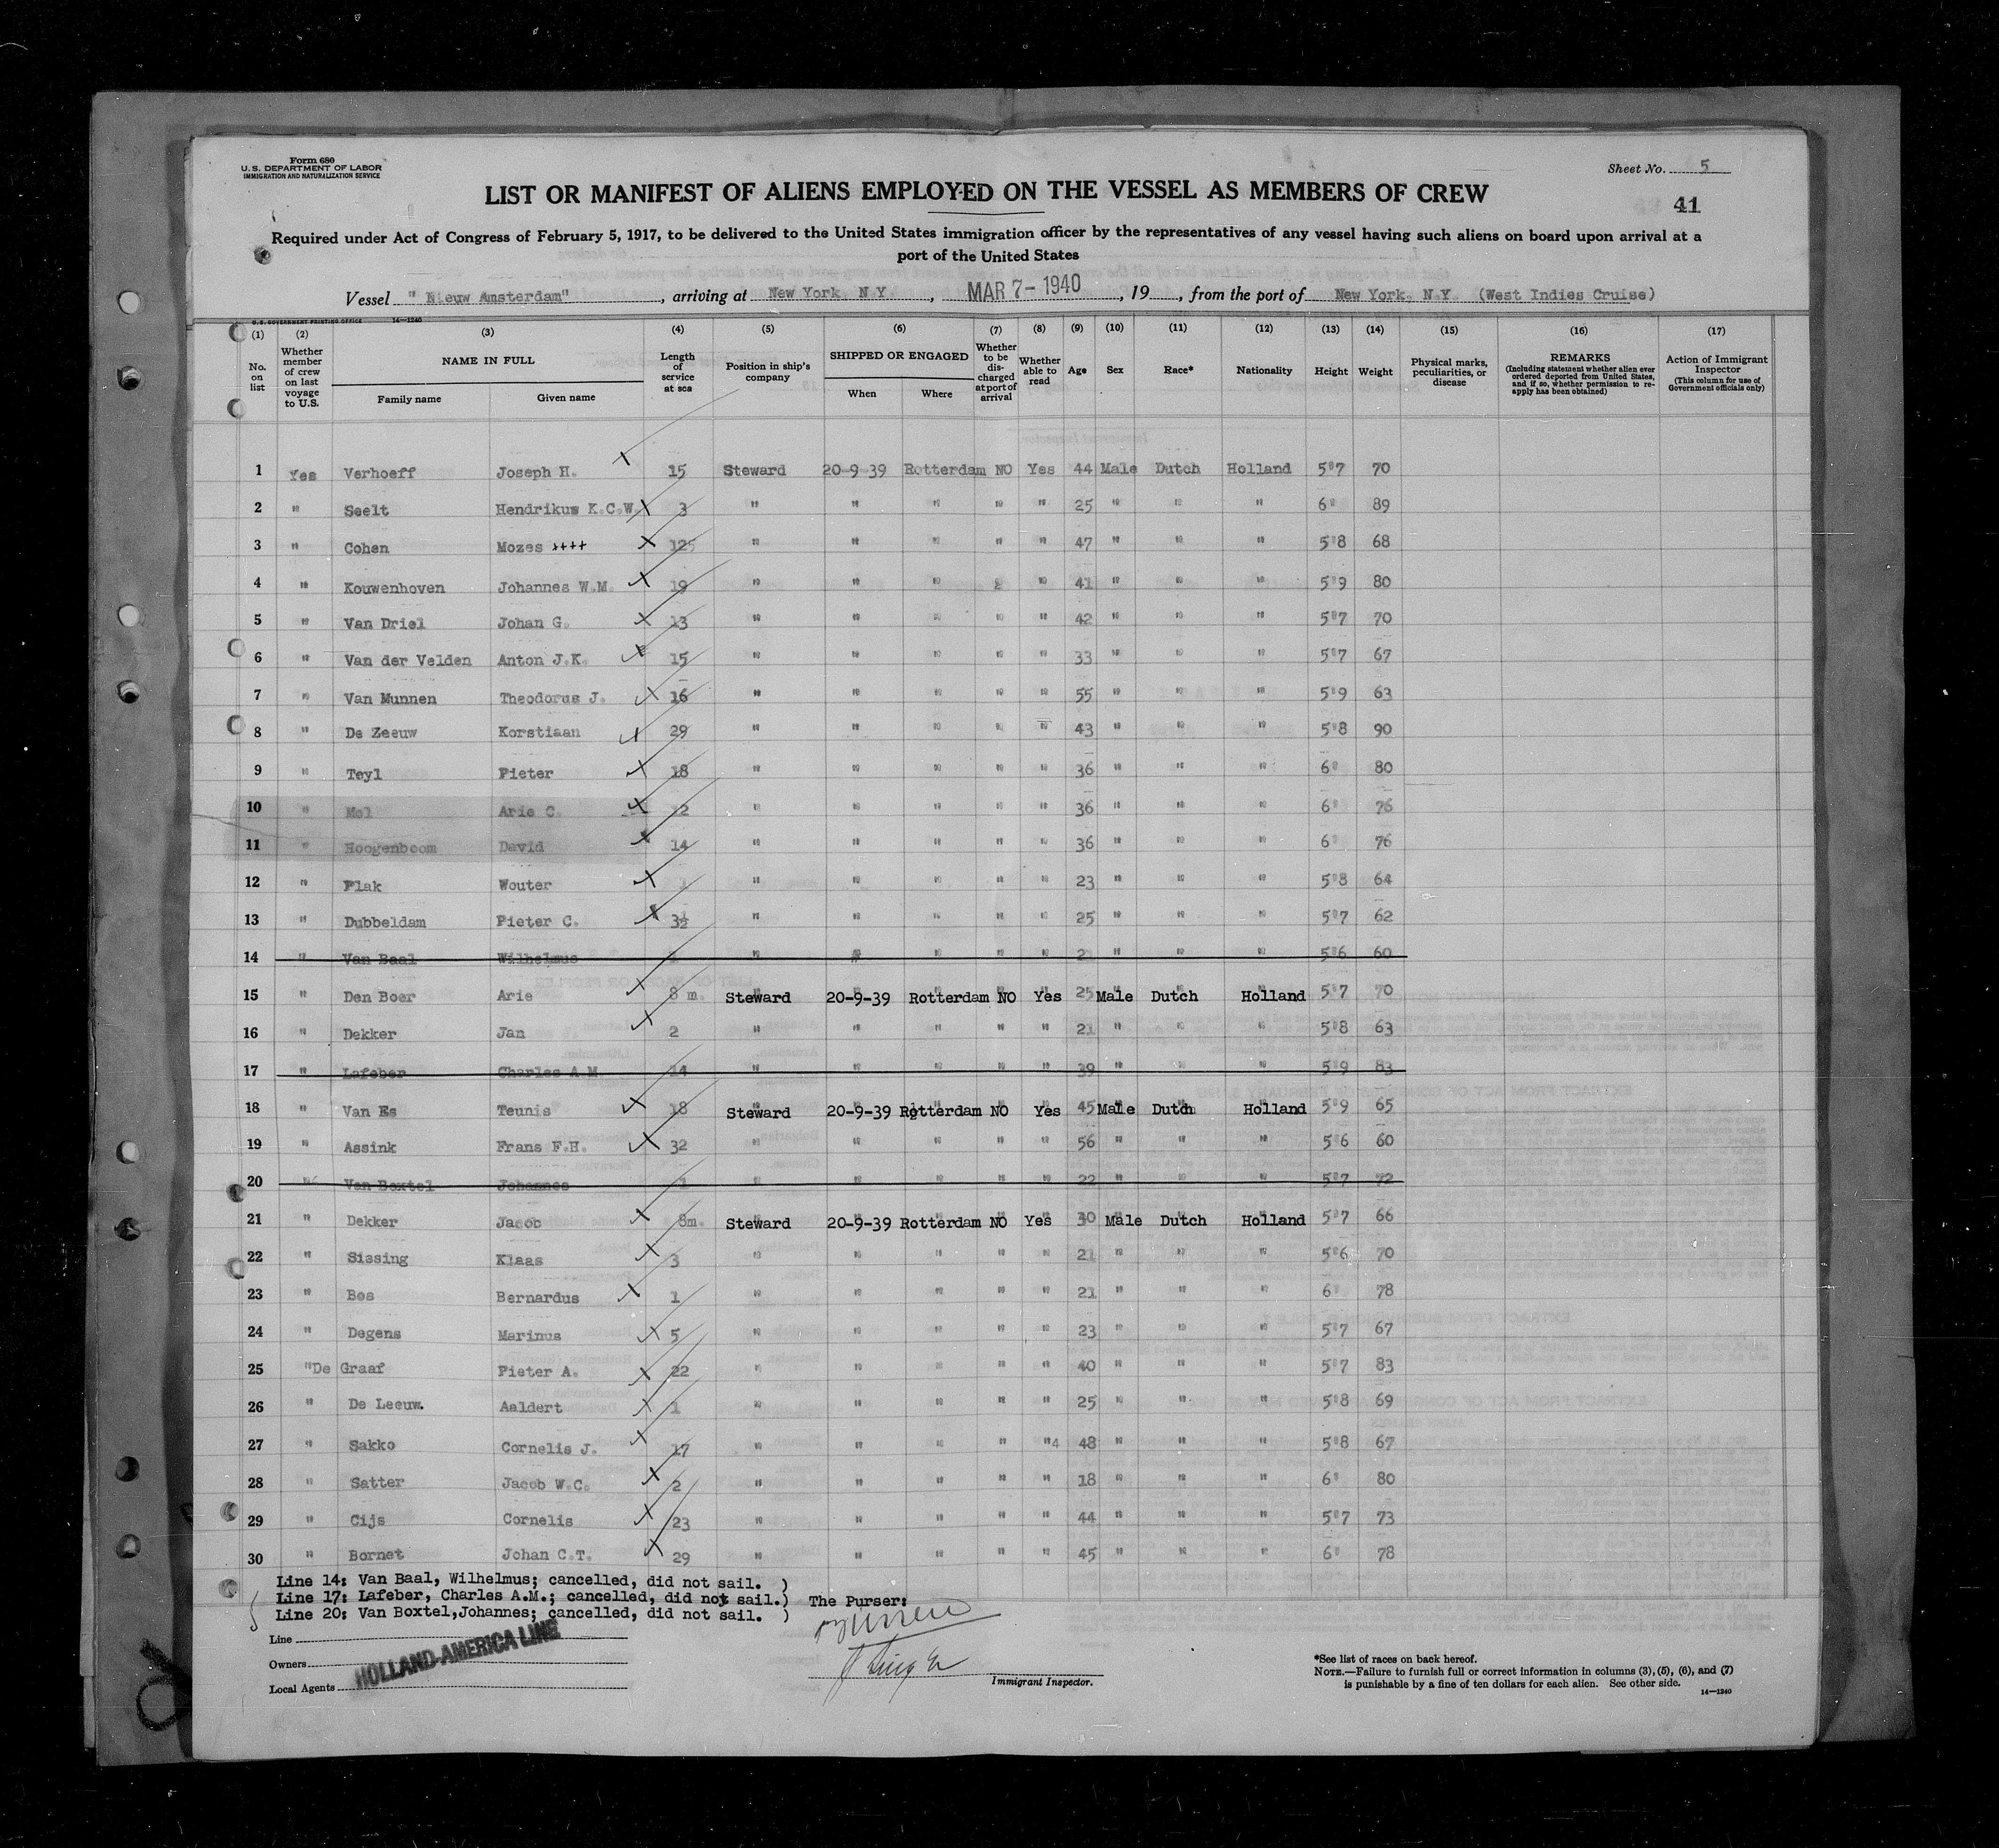 Form 680
U. S. DEPARTMENT OF LABOR
IMMIGRATION AND NATURALIZATION SERVICE
Sheet No. 5
LIST OR MANIFEST OF ALIENS EMPLOYED ON THE VESSEL AS MEMBERS OF CREW
41
Required under Act of Congress of February 5, 1917, to be delivered to the United States immigration officer by the representatives of any vessel having such aliens on board upon arrival at a
port of the United States
Vessel " Nieuw Amsterdam" , arriving at New York N.Y. , MAR 7- 1940 , 19 , from the port of New York. N.Y. (West Indies Cruise)
U. S. GOVERNMENT PRINTING OFFICE 14—1240
(1) (2) (3) (4) (5) (6) (7) (8) (9) (10) (11) (12) (13) (14) (15) (16) (17)
No. on list
Whether member of crew on last voyage to U.S.
NAME IN FULL
Family name
Given name
Length of service at sea
Position in ship's company
SHIPPED OR ENGAGED
When
Where
Whether to be discharged at port of arrival
Whether able to read
Age
Sex
Race*
Nationality
Height
Weight
Physical marks, peculiarities, or disease
REMARKS
(Including statement whether alien ever ordered deported from United States, and if so, whether permission to reapply has been obtained)
Action of Immigrant Inspector
(This column for use of Government officials only)
1 Yes Verhoeff Joseph H. 15 Steward 20-9-39 Rotterdam NO Yes 44 Male Dutch Holland 5'7 70
2 " Seelt Hendrikus K.C.W. 3 " " " " " 25 " " " 6' 89
3 " Cohen Mozes ++++ 125 " " " " " 47 " " " 5'8 68
4 " Kouwenhoven Johannes W.M. 19 " " " " 41 " " " 5'9 80
5 " Van Driel Johan G. 13 " " " " " 42 " " " 5'7 70
6 " Van der Velden Anton J.K. 15 " " " " " 33 " " " 5'7 67
7 " Van Munnen Theodorus J. 16 " " " " " 55 " " " 5'9 63
8 " De Zeeuw Korstiaan 29 " " " " " 43 " " " 5'8 90
9 " Teyl Pieter 18 " " " " " 36 " " " 6' 80
10 " Mol Arie C. 12 " " " " " 36 " " " 6' 76
11 " Hoogenboom David 14 " " " " " 36 " " " 6' 76
12 " Plak Wouter " " " " " 23 " " " 5'8 64
13 " Dubbeldam Pieter C. 3½ " " " " " 25 " " " 5'7 62
14 " Van Baal Wilhelmus " " " " " " " " 5'6 60
15 " Den Boer Arie 8 m. Steward 20-9-39 Rotterdam NO Yes 25 Male Dutch Holland 5'7 70
16 " Dekker Jan 2 " " " " " 21 " " " 5'8 63
17 " Lafeber Charles A.M. 14 " " " " " 39 " " " 5'9 83
18 " Van Es Teunis 18 Steward 20-9-39 Rotterdam NO Yes 45 Male Dutch Holland 5'9 65
19 " Assink Frans F.H. 32 " " " " " 56 " " " 5'6 60
20 " Van Boxtel Johannes 1 " " " " " 22 " " " 5'7 72
21 " Dekker Jacob 8m. Steward 20-9-39 Rotterdam NO Yes 30 Male Dutch Holland 5'7 66
22 " Sissing Klaas 3 " " " " " 21 " " " 5'6 70
23 " Bos Bernardus 1 " " " " " 21 " " " 6' 78
24 " Degens Marinus 5 " " " " " 23 " " " 5'7 67
25 "De Graaf Pieter A. 22 " " " " " 40 " " " 5'7 83
26 " De Leeuw. Aaldert 1 " " " " " 25 " " " 5'8 69
27 " Sakko Cornelis J. 17 " " " " "4 48 " " " 5'8 67
28 " Satter Jacob W.C. 2 " " " " " 18 " " " 6' 80
29 " Cijs Cornelis 23 " " " " " 44 " " " 5'7 73
30 " Bornet Johan C.T. 29 " " " " " 45 " " " 6' 78
Line 14: Van Baal, Wilhelmus; cancelled, did not sail. )
Line 17: Lafeber, Charles A.M.; cancelled, did not sail.) The Purser:
Line 20: Van Boxtel,Johannes; cancelled, did not sail. )
Line
Owners
Local Agents
HOLLAND-AMERICA LINE
Immigrant Inspector.
*See list of races on back hereof.
NOTE.—Failure to furnish full or correct information in columns (3), (5), (6), and (7)
is punishable by a fine of ten dollars for each alien. See other side.
14—1240